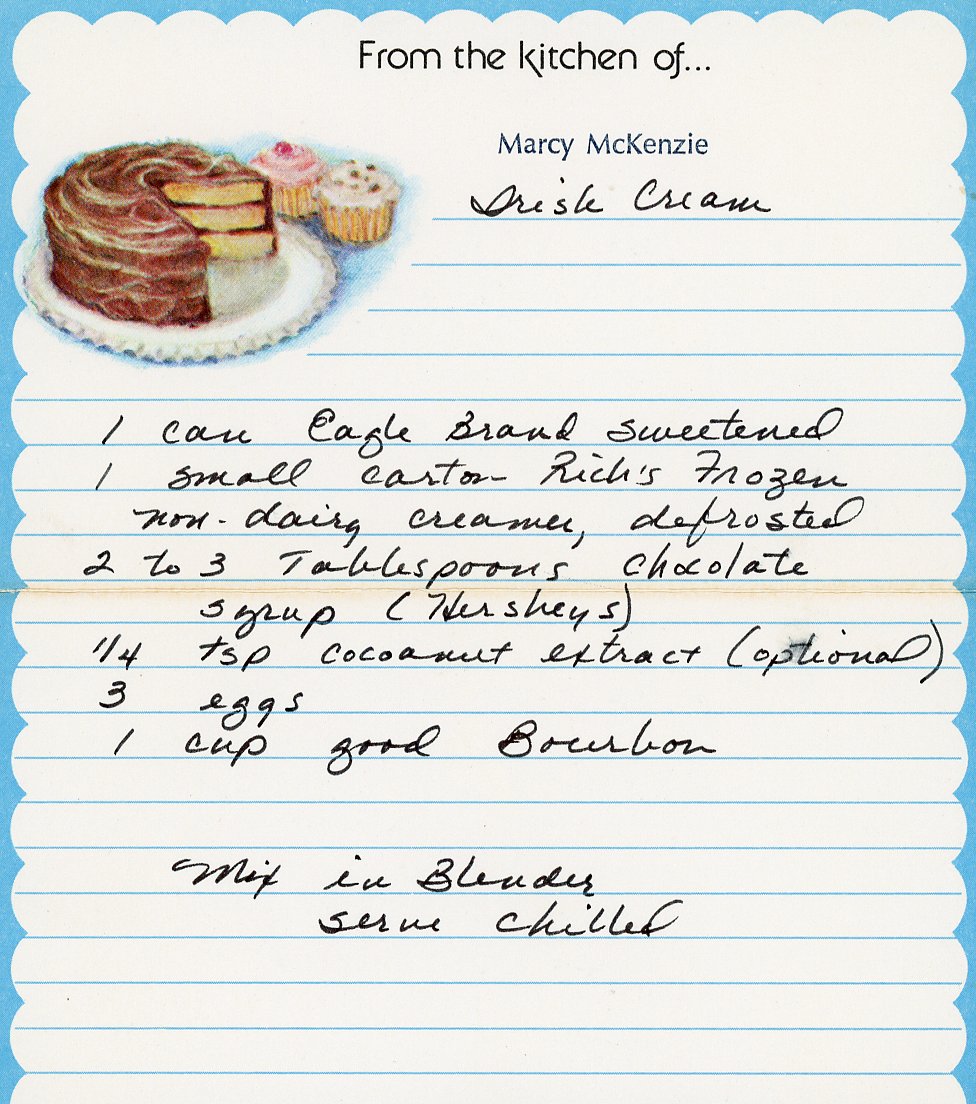 From the kitchen of...
Marcy McKenzie
Irish Cream
1 can Eagle Brand sweetened
1 small carton Rich's Frozen
non-dairy creamer, defrosted
2 to 3 Tablespoons chocolate
syrup (Hersheys)
1/4 tsp cocoanut extract (optional)
3 eggs
1 cup good Bourbon
Mix in Blender
serve chilled